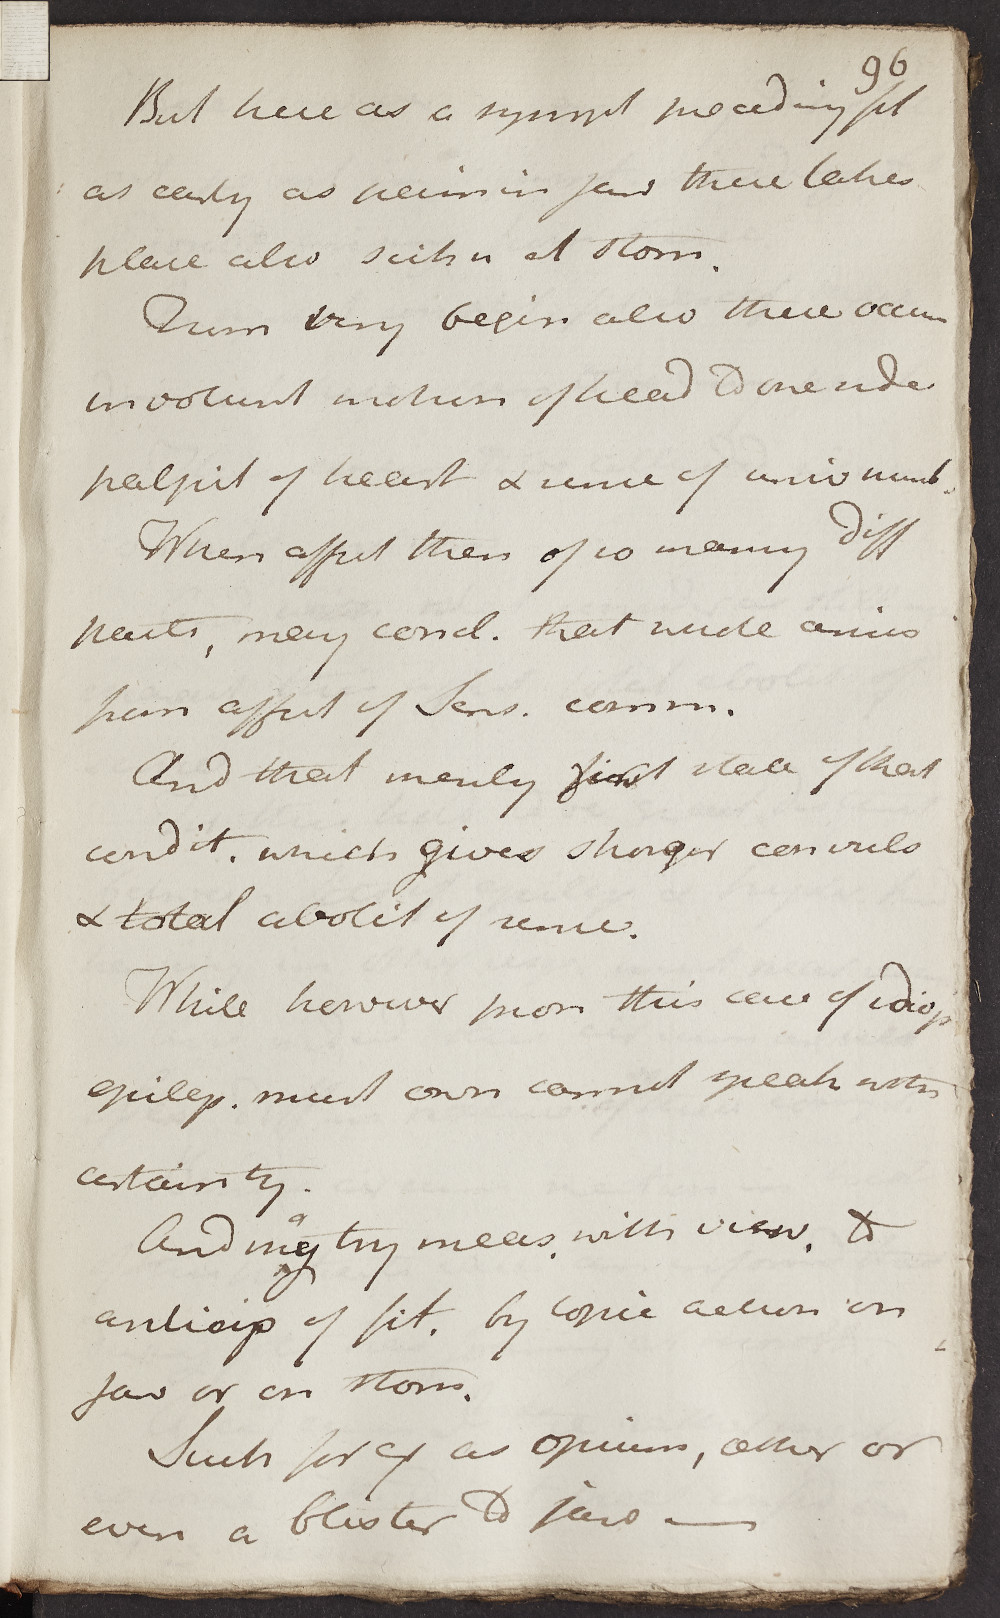 96
But here as a sympt preceding fit
as early as pain in jaw there takes
place also sickn at stom.
From very begin also there occur
involunt motion of head to one side
palpit of heart & sense of univ numb.
When affect then of so many diff
parts, may concl. that whole arises
from affect of Sens. comm.
And that merely first state of that
condit. which gives stronger convuls
& total abolit of sense.
While however from this case of idiop
epilep. must own cannot speak with
certainty.
And may try meas. with view. to
anticip of fit. by topic action on
jaw or on stom.
Such for ex as opium, æther or
even a blister to jaw —